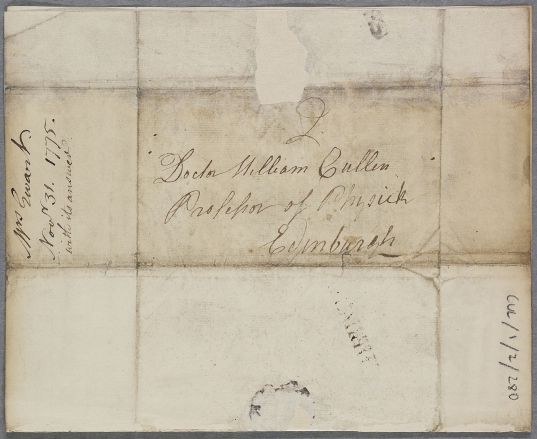 2
Doctor William Cullen
Professor of Physick
Edinburgh
Mrs Ewart
Novr. 31. 1775.
with its answer
CUL/1/2/280